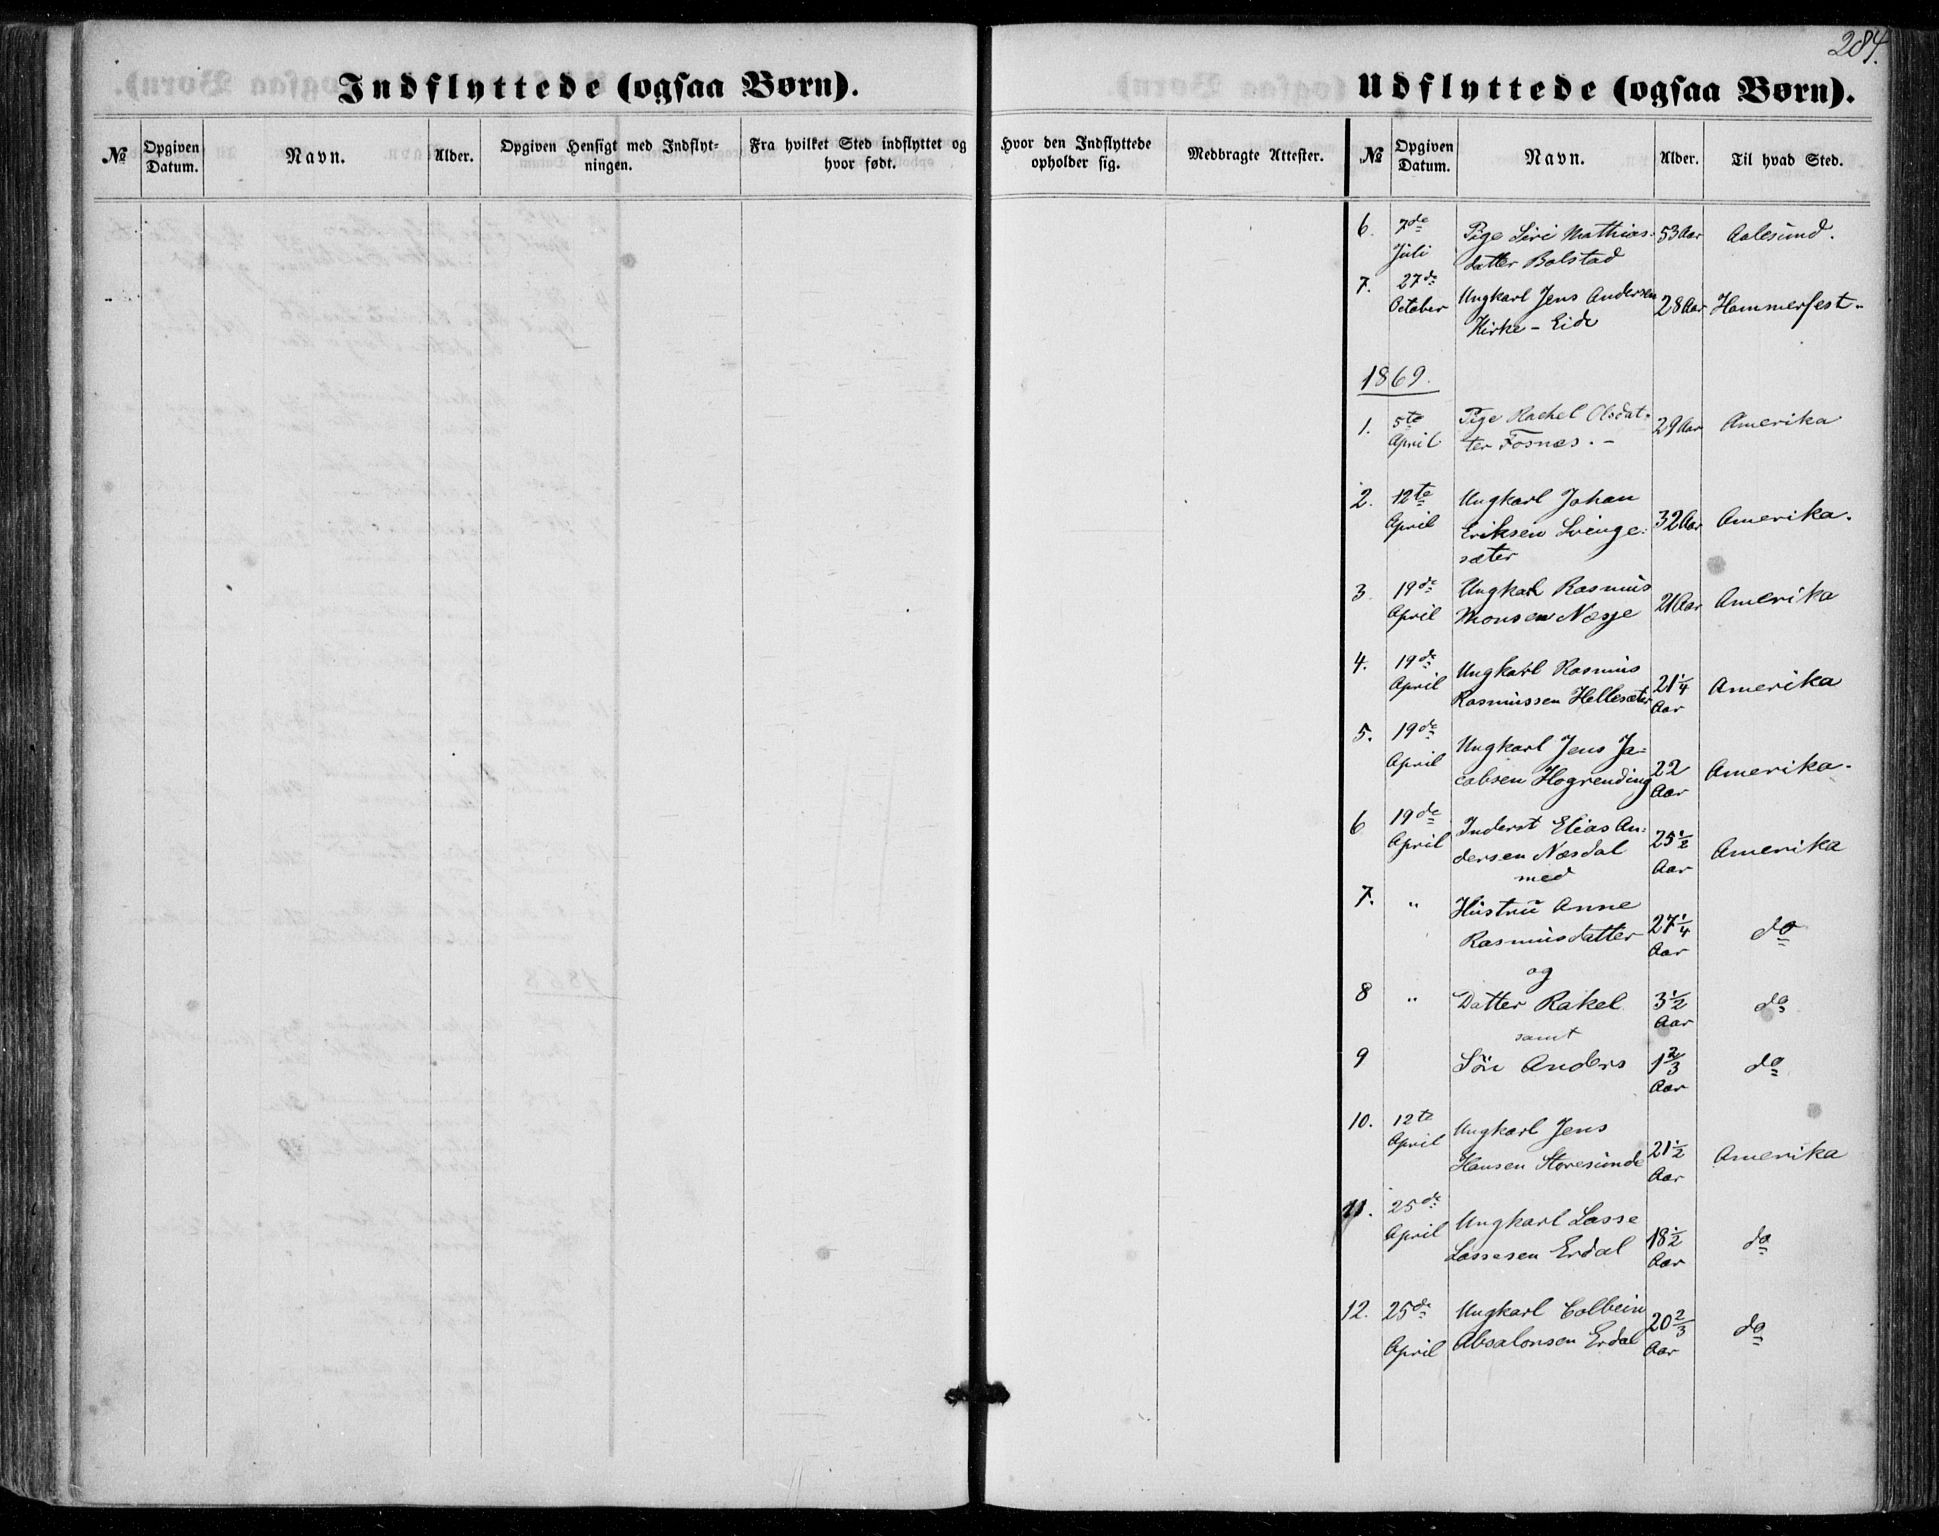 284.
Indflyttede (ogsaa Børn).
Udflyttede (ogsaa Børn).
№ Opgiven Datum. Navn. Alder. Opgiven Hensigt med Indflyt-ningen. Fra hvilket Sted indflyttet og hvor født. Hvor den Indflyttede opholder sig. Medbragte Attester. № Opgiven Datum. Navn. Alder. Til hvad Sted.
6. 7de Pige Siri Mathias- 53 Aar Aalesund.
Juli datter Bolstad
7. 27de Ungkarl Jens Andersen 28 Aar Hammerfest.
October Kirke-Eide
1869.
1. 5te Pige Rachel Olsdat- 29 Aar Amerika
April ter Fosnæs.
2. 12te Ungkarl Johan
April Eriksen Svinge- 32 Aar Amerika.
sæter
3 19de Ungkarl Rasmus 21 Aar Amerika
April Monsen Næsje
4. 19de Ungkarl Rasmus 21 1/4 Amerika
April Rasmussen Hellesæter Aar
5. 19de Ungkarl Jens Ja-
April cobsen Hogrending 22 Aar Amerika.
6 19de Inderst Elias An- 25 1/2 Amerika
April dersen Næsdal Aar
med
7. " Hustru Anne 27 1/4 do
Rasmusdatter Aar
og
8 " Datter Rakel 3 1/2 Aar do
samt
9 Søn Anders 1 2/3 Aar do
10. 12te Ungkarl Jens
April Hansen Storesunde 21 1/2 Aar Amerika
11. 25de Ungkarl Lasse
April Lassesen Erdal 18 1/2 Aar do
12. 25de Ungkarl Colbein 20 2/3 do
April Absalonsen Erdal Aar